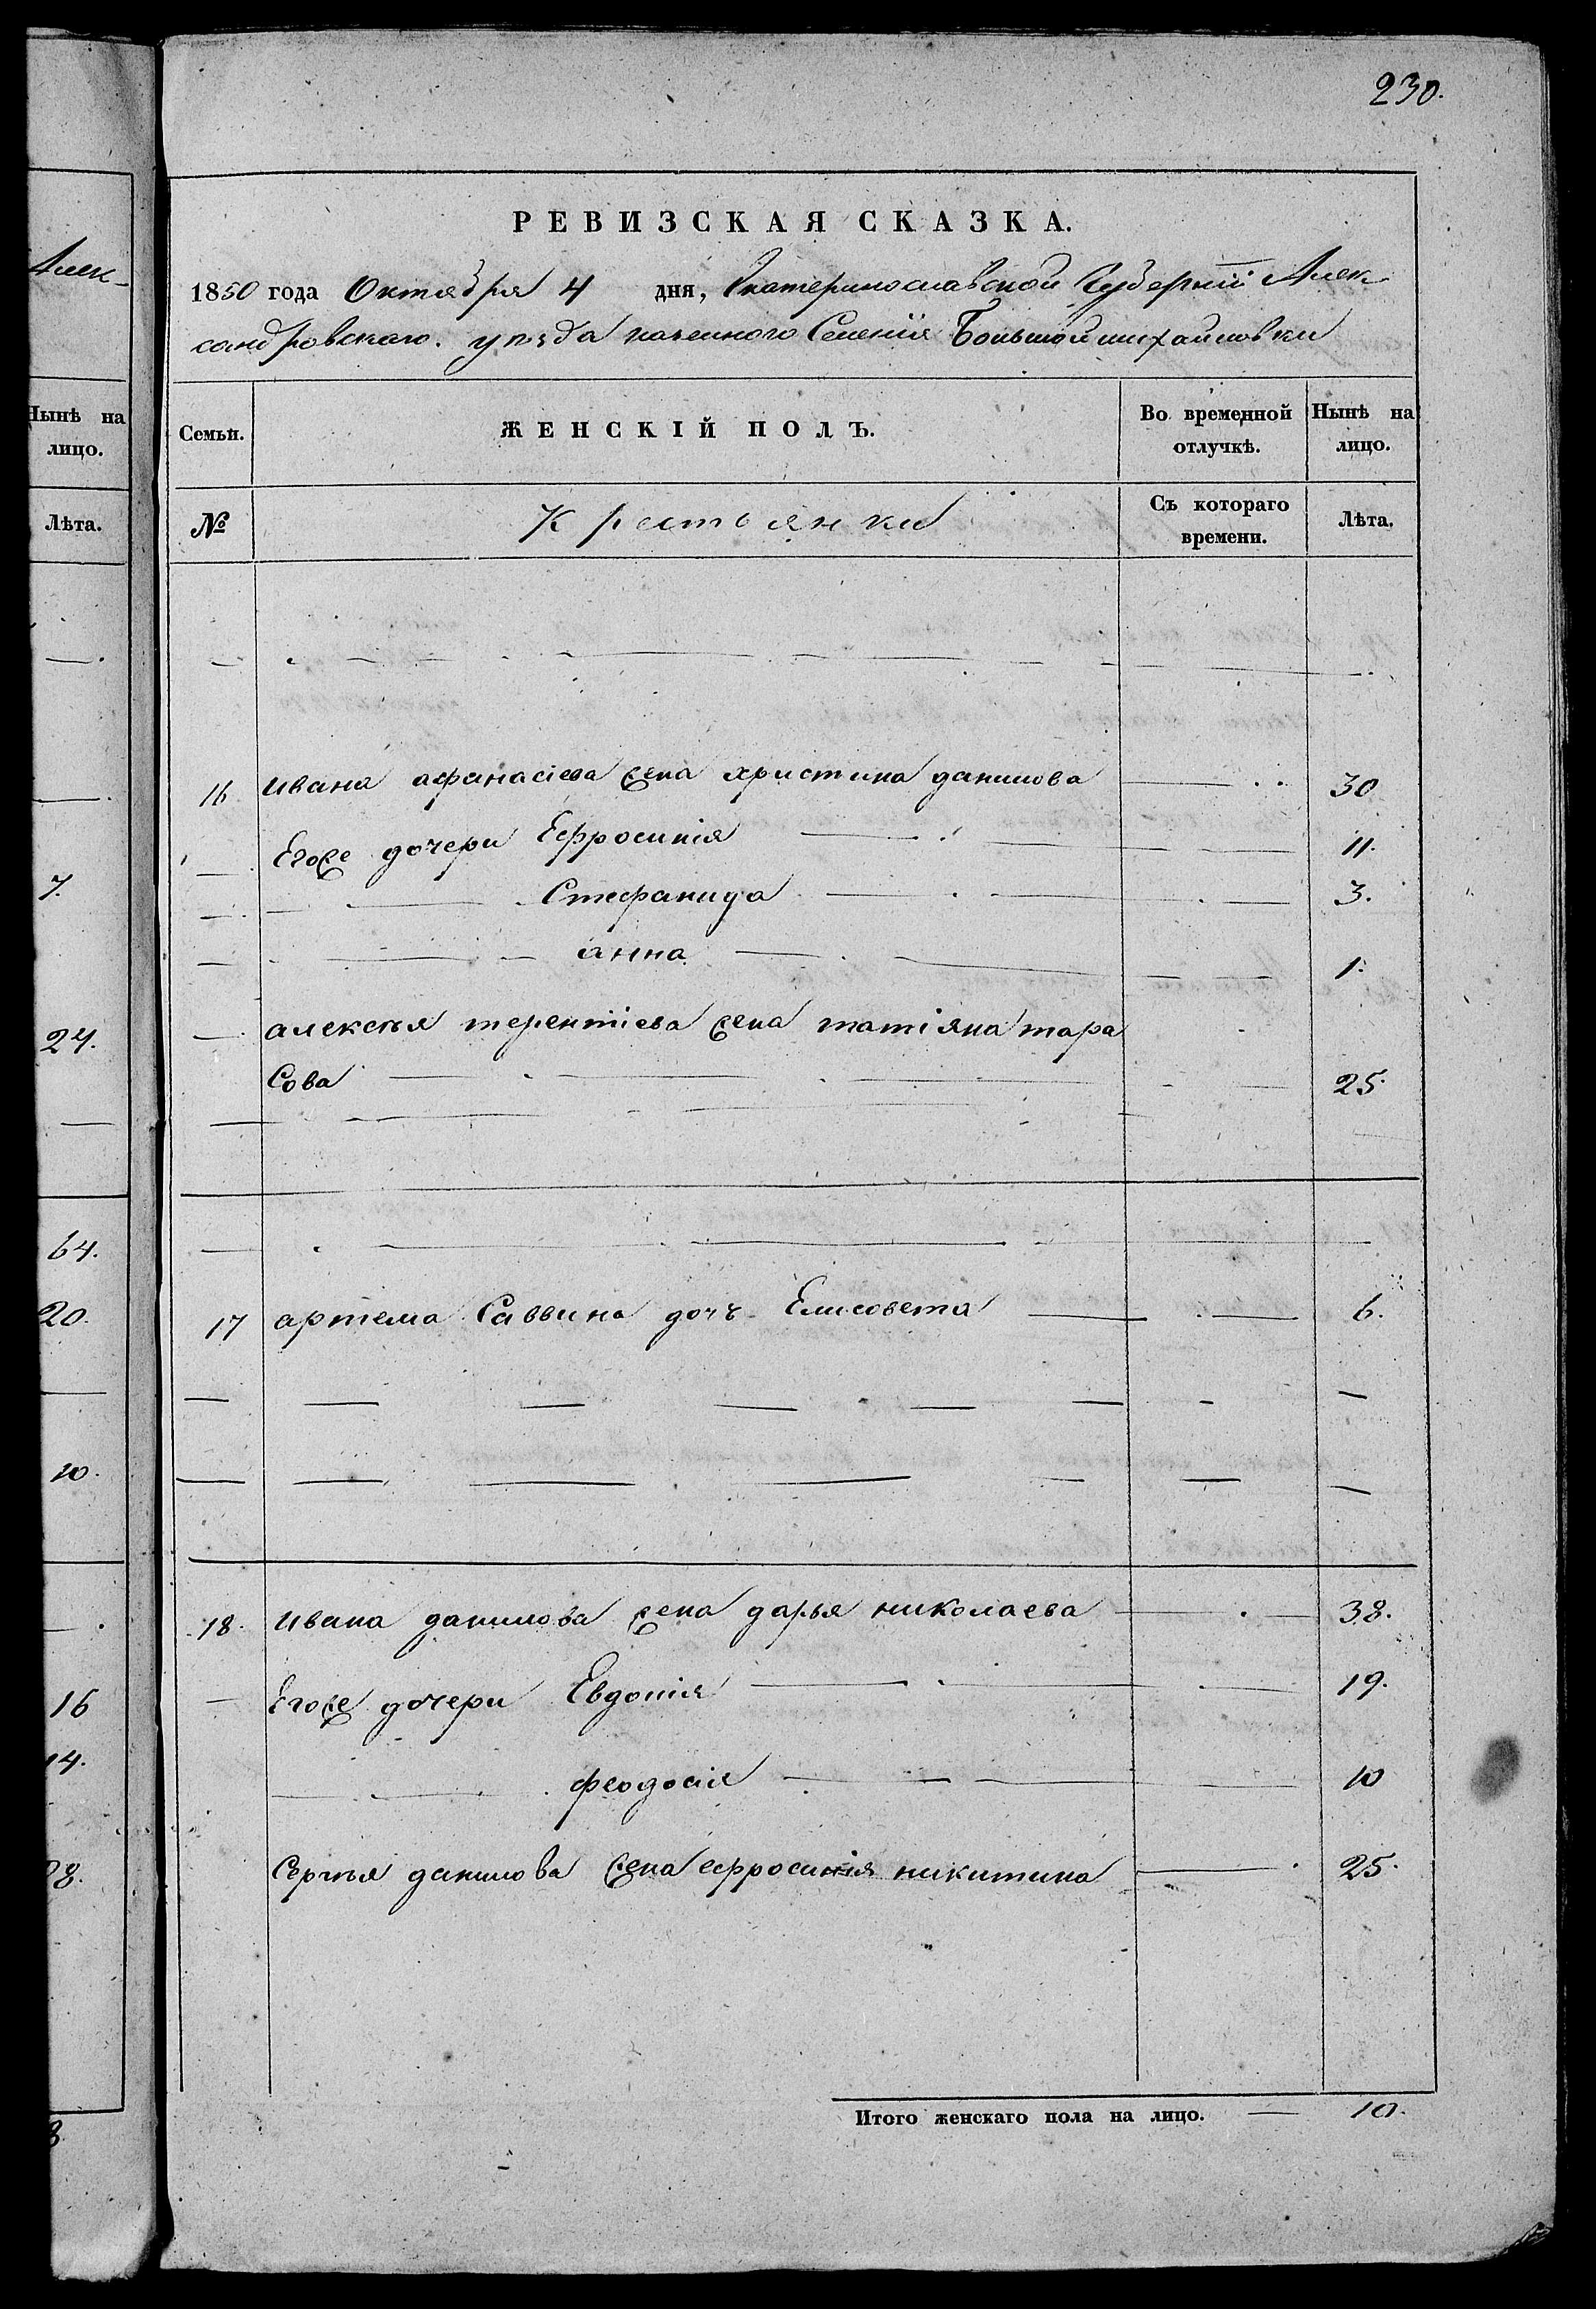 230.
Алек-
РЕВИЗСКАЯ СКАЗКА.
1850 года Октября 4 дня, Екатеринославской Губерніи Алек
сандровскаго. уѣзда казенного Селенія Большой михайловки
Нынѣ на лицо.
Лѣта.
Семьи.
ЖЕНСКІЙ ПОЛЪ.
Во временной отлучкѣ.
Нынѣ на лицо.
№
Крестьянки
Съ котораго времени.
Лѣта.
16 ивана афанасіева жена христина данилова 30
Егоже дочери Ефросинія 11.
7.
Стефанида 3.
анна 1.
24.
алексѣя терентіева жена татіяна тара
сова 25.
64.
20.
17 артема Саввина дочь Елисовета 6.
10.
18. ивана данилова жена дарья николаева 38.
16
Егоже дочери Евдокія 19.
14.
феодосія 10
Сергѣя данилова жена ефросинія никитина 25.
8.
Итого женскаго пола на лицо. 10.